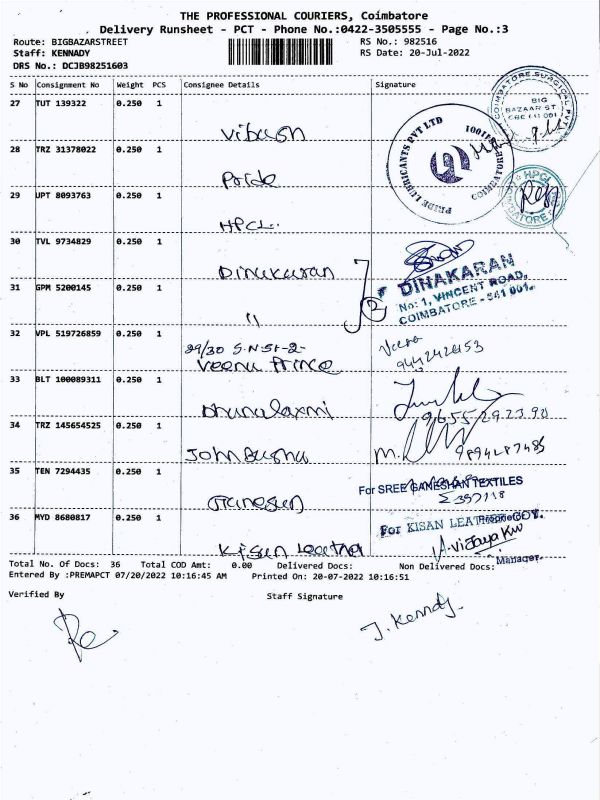 THE PROFESSIONAL COURIERS, Coimbatore
Delivery Runsheet - PCT - Phone No.:0422-3505555 - Page No.:3
Route: BIGBAZARSTREET RS No.: 982516
Staff: KENNADY RS Date: 20-Jul-2022
DRS No.: DCJB98251603
S No Consignment No Weight PCS Consignee Details Signature
COIMBATORE SURGICAL
BIG
BAZAAR ST
CBE 641 001
27 TUT 139322 0.250 1
PRIDE LUBRICANTS PVT LTD
COIMBATORE
28 TRZ 31378022 0.250 1
Pride
HPCL
COIMBATORE
29 UPT 8093763 0.250 1
HPCL.
30 TVL 9734829 0.250 1
Dinakaran 2
DINAKARAN
No: 1, VINCENT ROAD,
COIMBATORE - 641 001.
31 GPM 5200145 0.250 1
"
32 VPL 519726859 0.250 1
29/30 S.N.St-2-
Veena Prince
Veena
33 BLT 100089311 0.250 1
Dhanalaxmi
9655292390
34 TRZ 145654525 0.250 1
9894287485
35 TEN 7294435 0.250 1
Ganesan
For SREE GANESHAN TEXTILES
36 MYD 8680817 0.250 1
Kisan Leather
For KISAN LEATHER
Manager.
Total No. Of Docs: 36 Total COD Amt: 0.00 Delivered Docs: Non Delivered Docs:
Entered By :PREMAPCT 07/20/2022 10:16:45 AM Printed On: 20-07-2022 10:16:51
Verified By Staff Signature
J. Kennady.